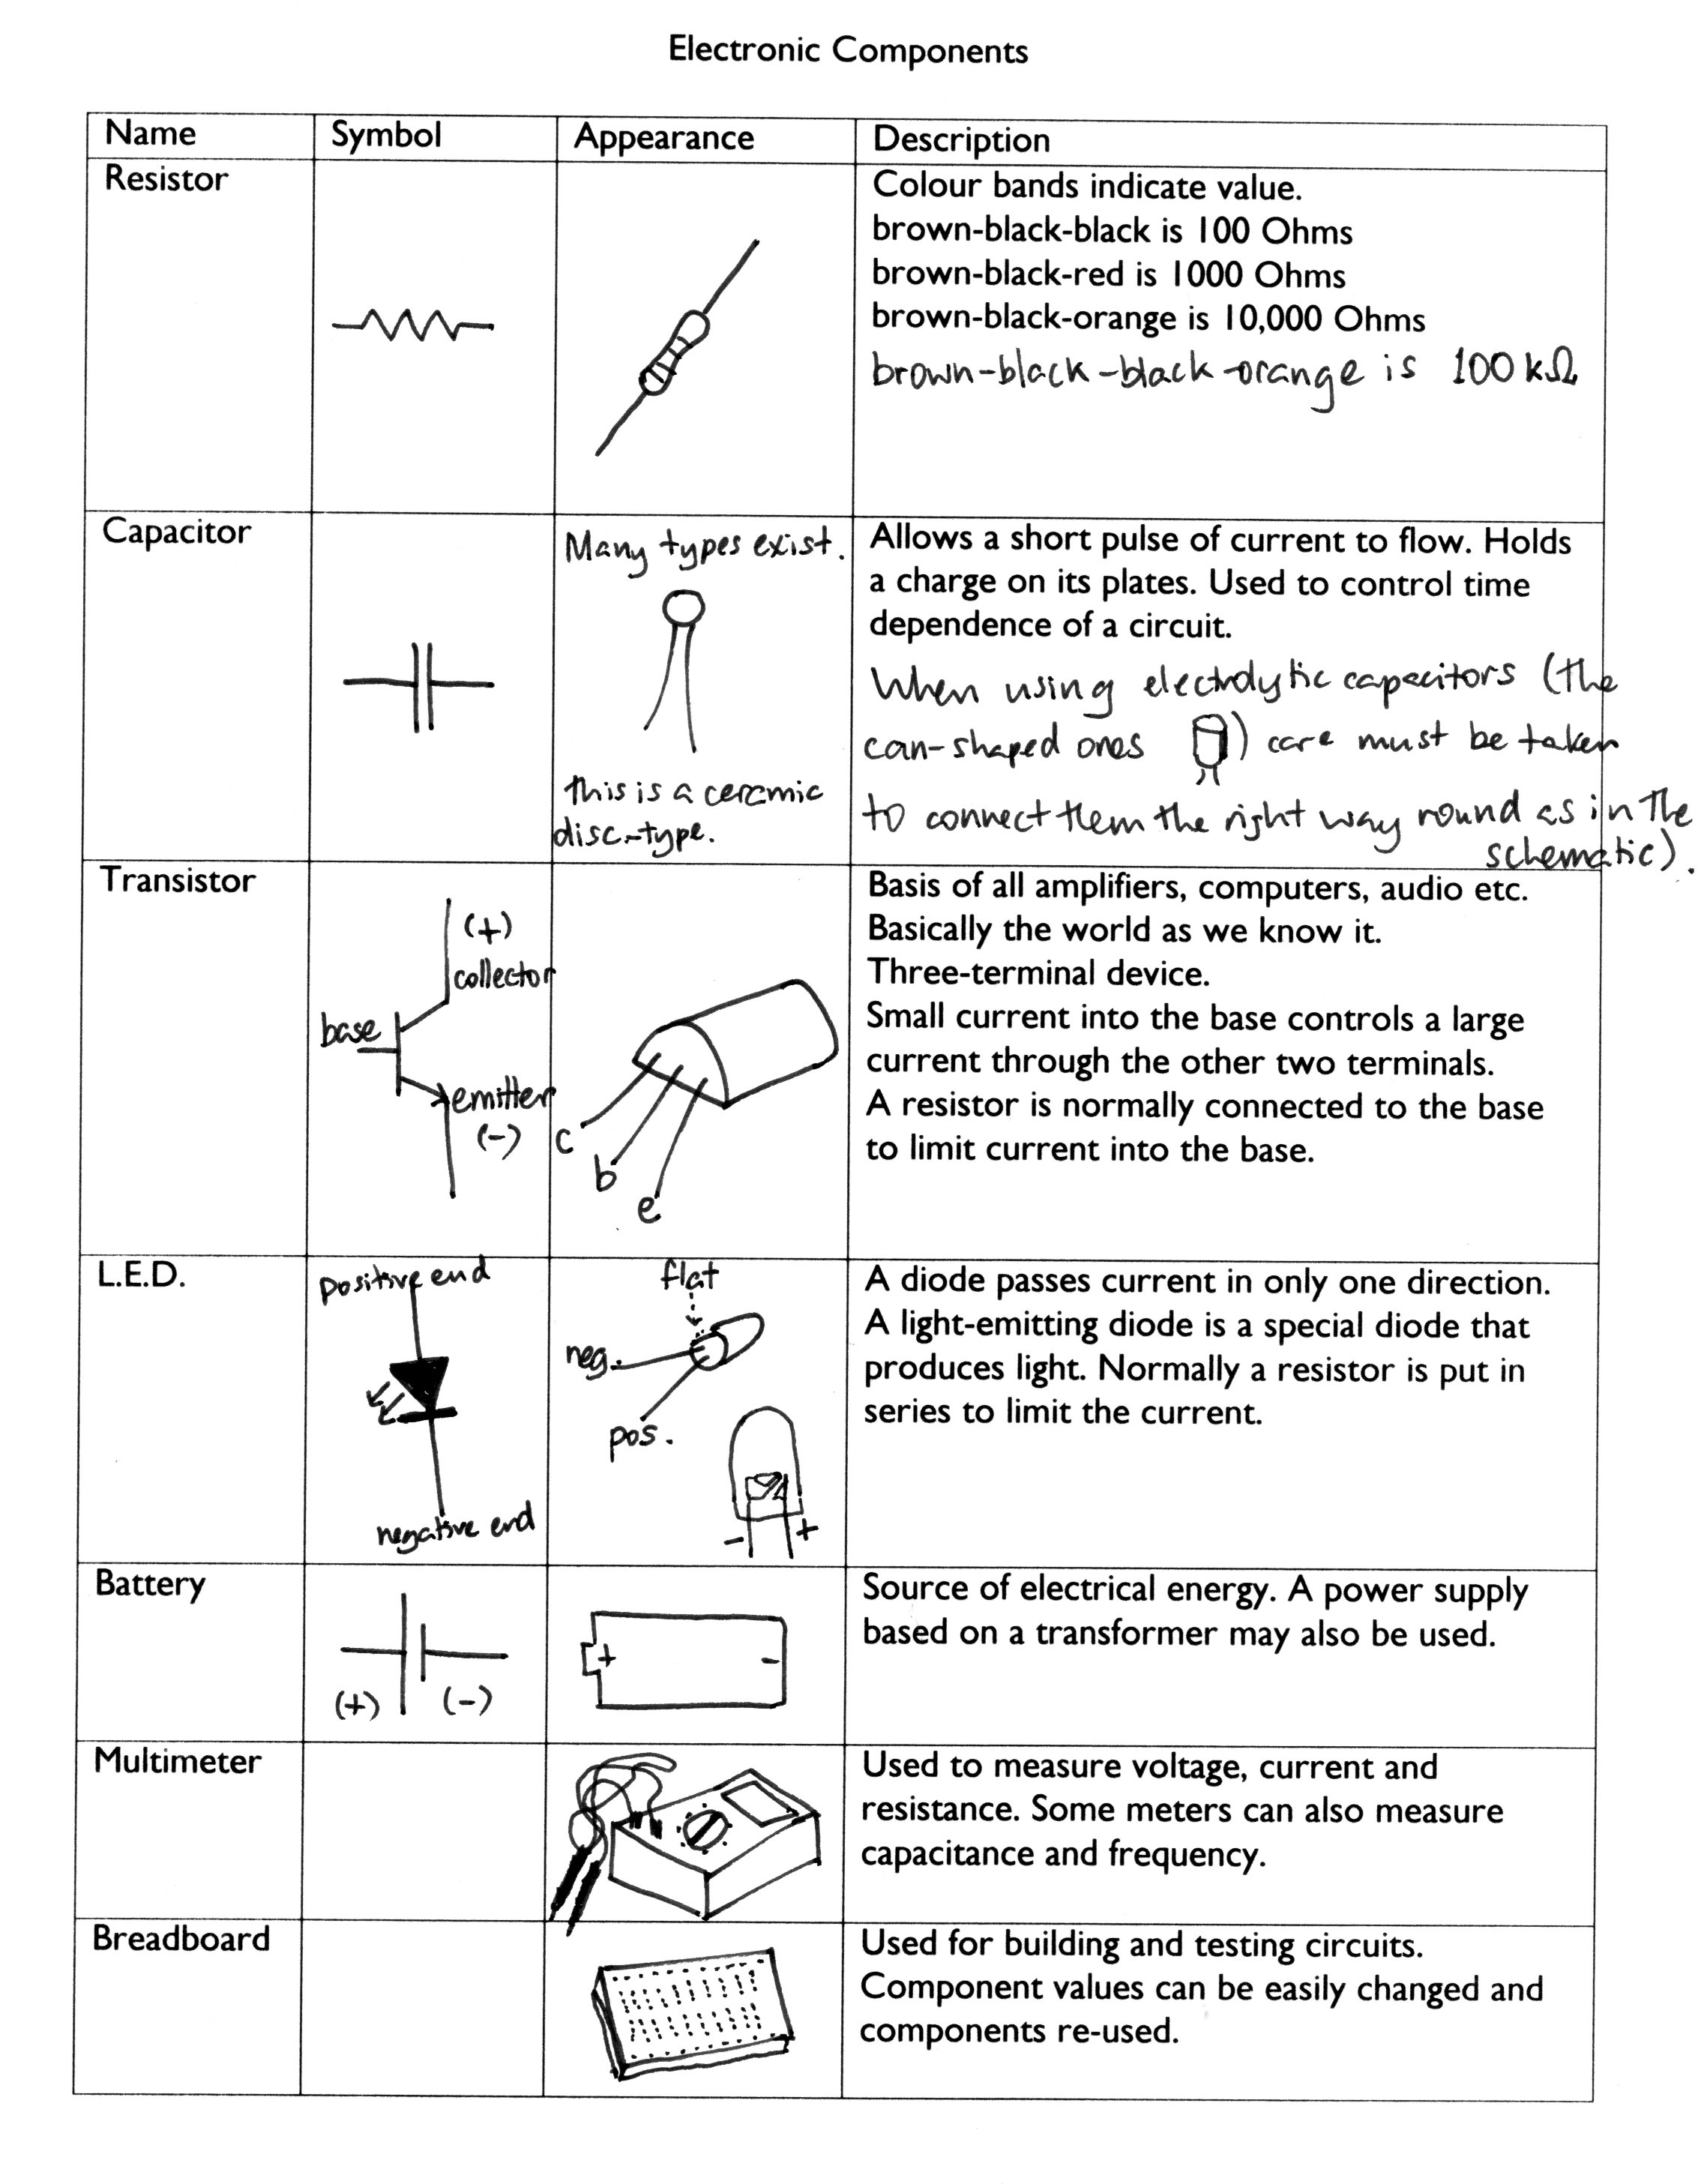 Electronic Components
Name Symbol Appearance Description
Resistor
Colour bands indicate value.
brown-black-black is 100 Ohms
brown-black-red is 1000 Ohms
brown-black-orange is 10,000 Ohms
brown-black-black-orange is 100 kΩ
Capacitor
Many types exist.
this is a ceramic
disc-type.
Allows a short pulse of current to flow. Holds
a charge on its plates. Used to control time
dependence of a circuit.
When using electrolytic capacitors (the
can-shaped ones ) care must be taken
to connect them the right way round as in the
schematic).
Transistor
(+)
collector
base
emitter
(-)
c
b
e
Basis of all amplifiers, computers, audio etc.
Basically the world as we know it.
Three-terminal device.
Small current into the base controls a large
current through the other two terminals.
A resistor is normally connected to the base
to limit current into the base.
L.E.D.
positive end
negative end
flat
neg.
pos.
- +
A diode passes current in only one direction.
A light-emitting diode is a special diode that
produces light. Normally a resistor is put in
series to limit the current.
Battery
(+) (-)
+ -
Source of electrical energy. A power supply
based on a transformer may also be used.
Multimeter
Used to measure voltage, current and
resistance. Some meters can also measure
capacitance and frequency.
Breadboard
Used for building and testing circuits.
Component values can be easily changed and
components re-used.